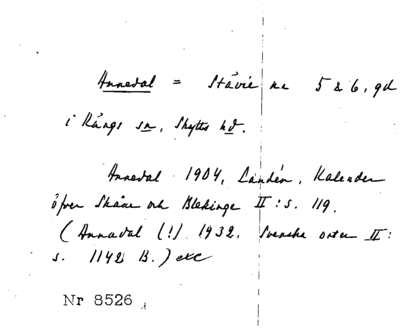 Annedal = Stävie nr 5 & 6, gd
i Kängs sn, Skytts hd.
Annedal 1904, Landén, Kalender
öfver Skåne och Blekinge II: s. 119.
(Annadal (!) 1932. Svenska orter II:
s. 1142 B.)
Nr 8526